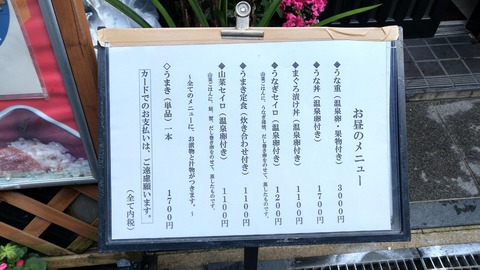 お昼のメニュー
◆うな重（温泉卵・果物付き） 3000円
◆うな丼（温泉卵付き） 1700円
◆まぐろ漬け丼（温泉卵付き） 1100円
◆うなぎセイロ（温泉卵付き） 1200円
山菜ごはんに、うなぎ蒲焼、だし巻き卵をのせて、蒸したものです。
◆うまき定食（炊き合わせ付き） 1100円
◆山菜セイロ（温泉卵付き） 1100円
山菜ごはんに、だし巻き卵をのせて、蒸したものです。
～全てのメニューに、お漬物と汁物がつきます。～
◇うまき（単品）一本 1700円
カードでのお支払いは、ご遠慮願います。
（全て内税）